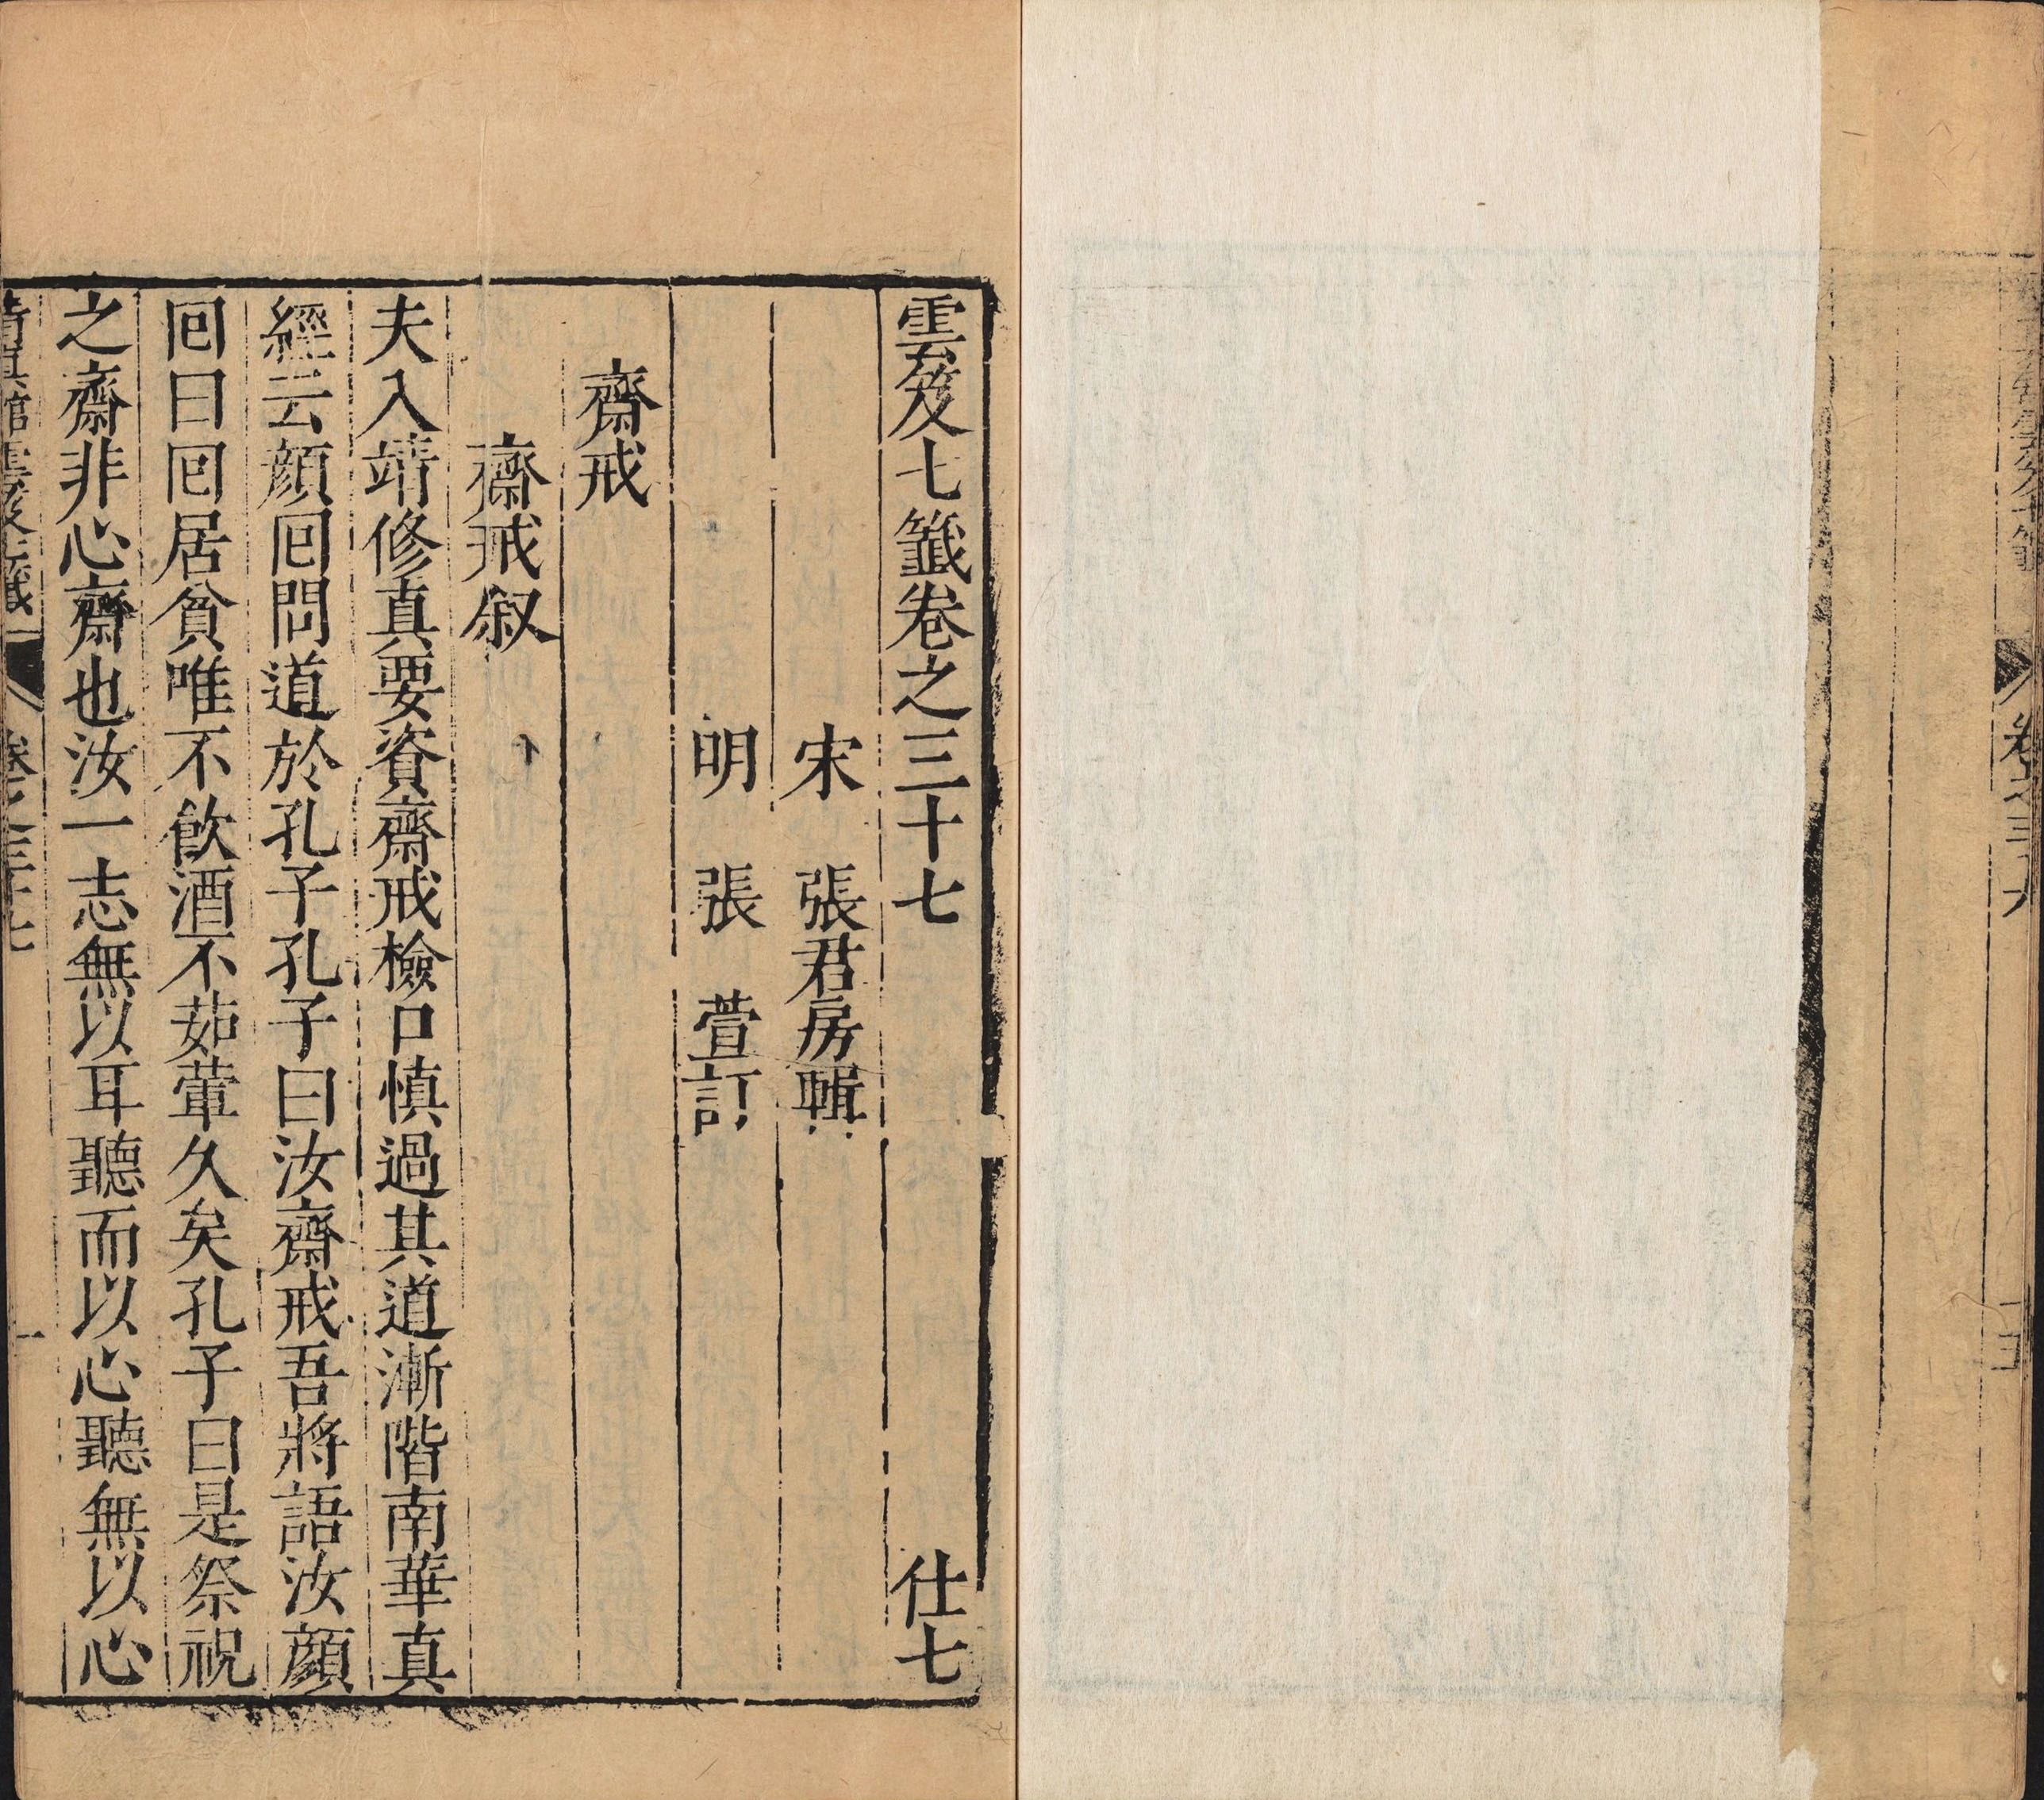 卷之三十六
十五
雲笈七籤卷之三十七 仕七
宋 張君房輯
明 張 萱訂
齋戒
齋戒叙
夫入靖修真要資齋戒檢口慎過其道漸階南華真
經云顔囘問道於孔子孔子曰汝齋戒吾將語汝顔
囘曰囘居貧唯不飲酒不茹葷久矣孔子曰是祭祀
之齋非心齋也汝一志無以耳聽而以心聽無以心
清真館雲笈七籤 卷之三十七 一